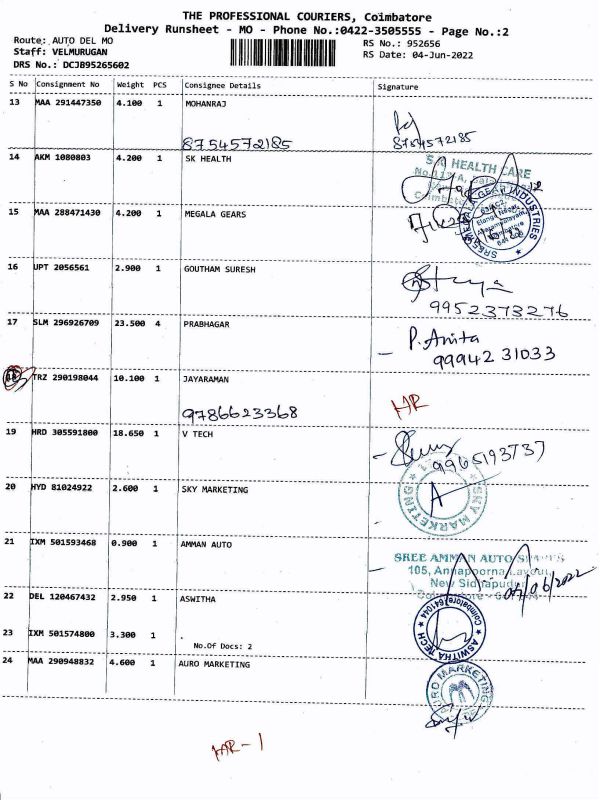 THE PROFESSIONAL COURIERS, Coimbatore
Delivery Runsheet - MO - Phone No.:0422-3505555 - Page No.:2
Route: AUTO DEL MO
RS No.: 952656
Staff: VELMURUGAN
RS Date: 04-Jun-2022
DRS No.: DCJB95265602
S No Consignment No Weight PCS Consignee Details Signature
13 MAA 291447350 4.100 1 MOHANRAJ
8754572185 8754572185
14 AKM 1080803 4.200 1 SK HEALTH
S.K. HEALTH CARE
15 MAA 288471430 4.200 1 MEGALA GEARS
SREE MEGALA GEAR INDUSTRIES
16 UPT 2056561 2.900 1 GOUTHAM SURESH
9952373276
17 SLM 296926709 23.500 4 PRABHAGAR
P. Anita
99942 31033
TRZ 290198044 10.100 1 JAYARAMAN
9786623368 HR
19 HRD 305591800 18.650 1 V TECH
9965193737
20 HYD 81024922 2.600 1 SKY MARKETING
SKY MARKETING
21 IXM 501593468 0.900 1 AMMAN AUTO
SREE AMMAN AUTO SPARES
105, Annapoorna Layout,
New Sidhapudur
22 DEL 120467432 2.950 1 ASWITHA
ASWITHA TECH Coimbatore 641044
23 IXM 501574800 3.300 1
No.Of Docs: 2
24 MAA 290948832 4.600 1 AURO MARKETING
AURO MARKETING
HR-1